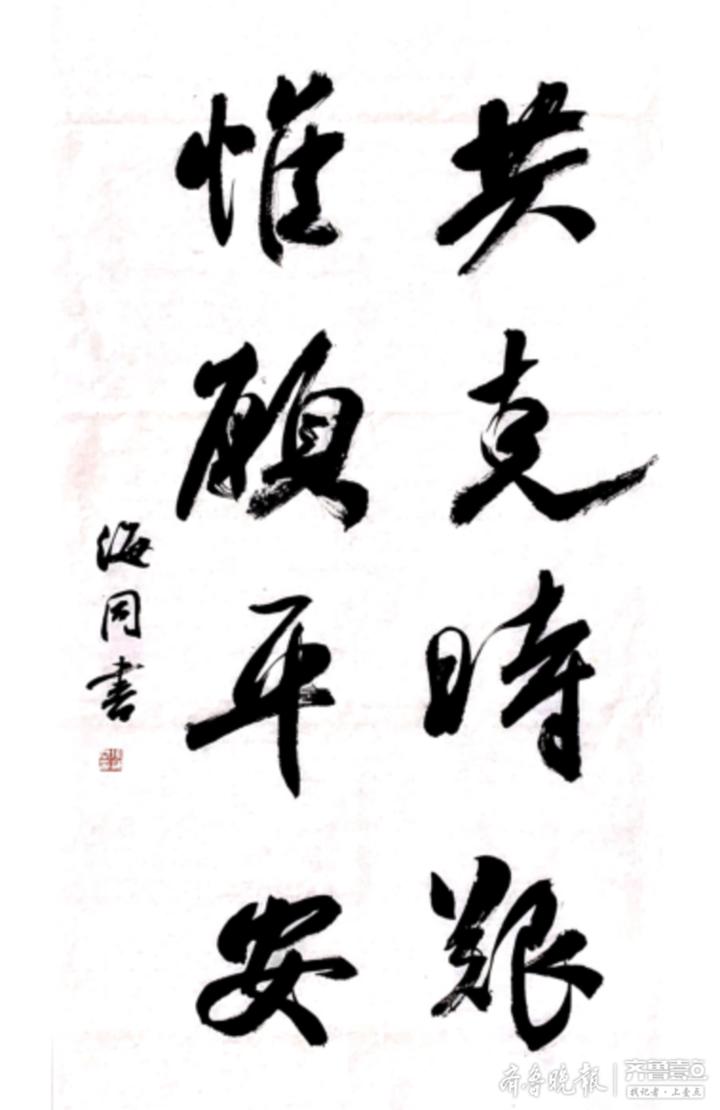 共克時艱
惟願平安
海同书
齐鲁晚报
齐鲁壹点
找记者·上壹点